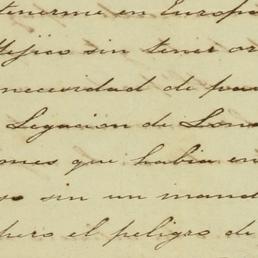 tenerme en Europa
Méjico sin tener or
necesidad de pa
Legación de Lond
ones que habia en
o sin un mand
pero el peligro de